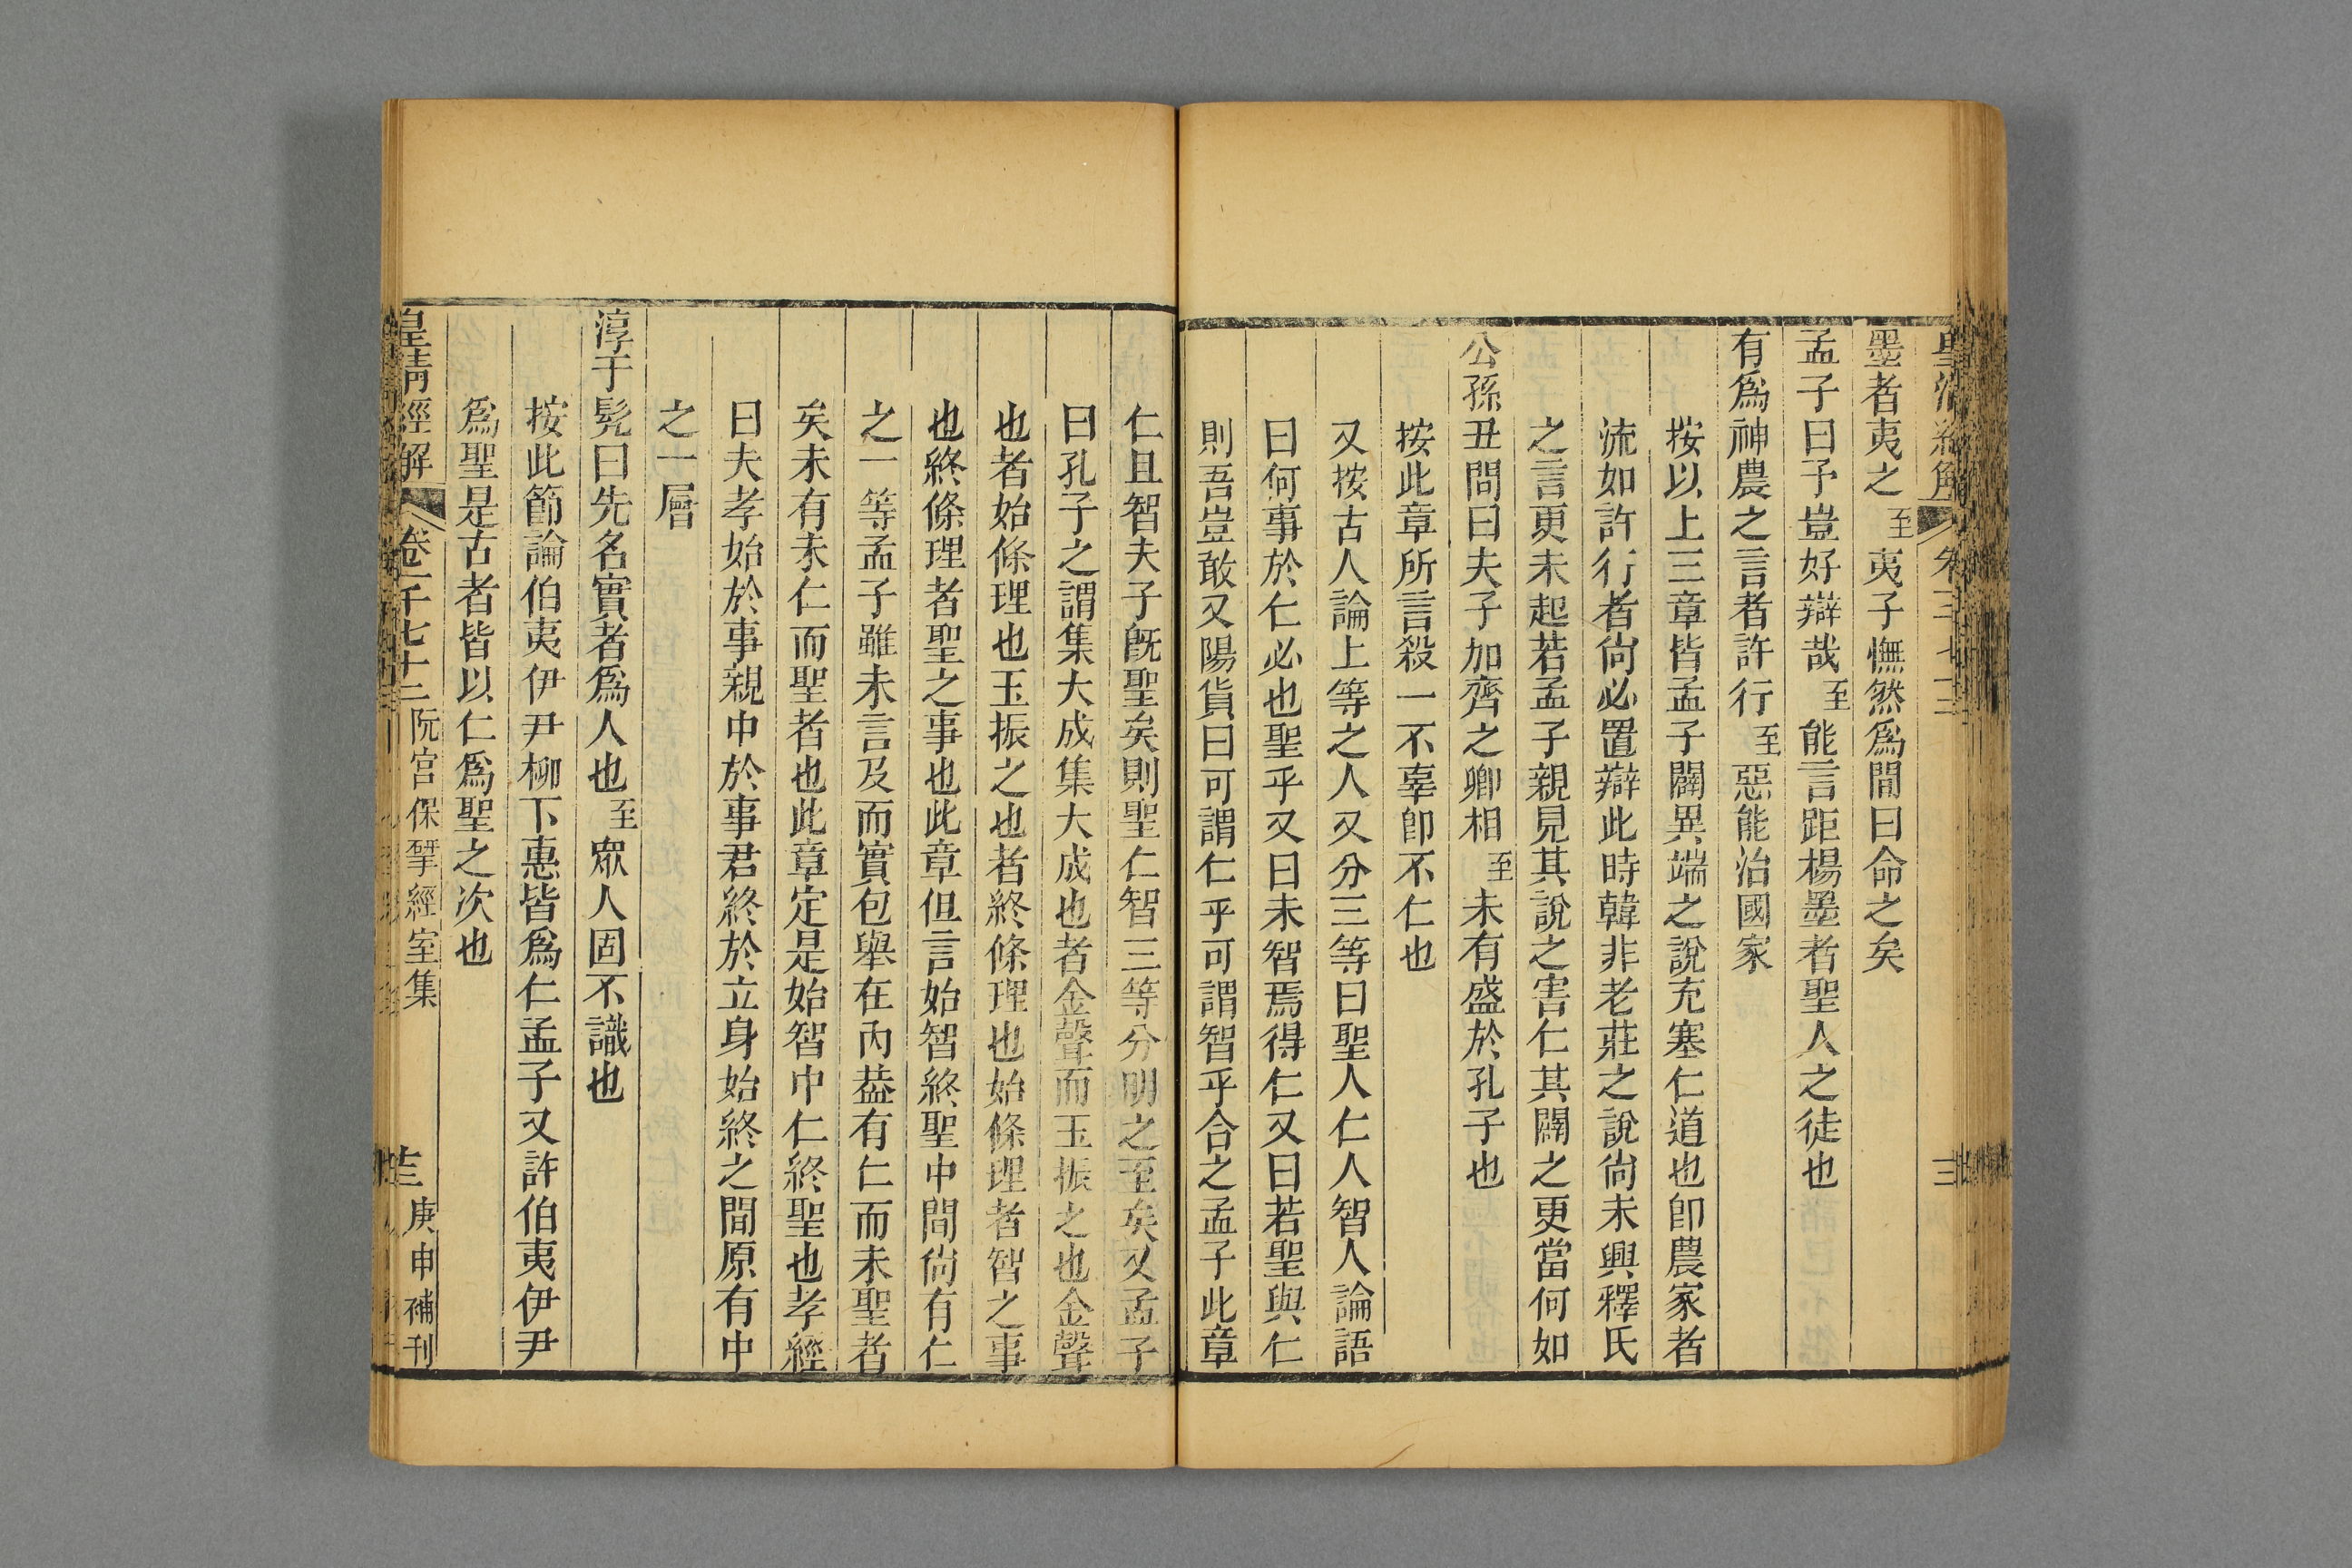 墨者夷之至夷子憮然爲閒曰命之矣
孟子曰予豈好辯哉至能言距楊墨者聖人之徒也
有爲神農之言者許行至惡能治國家
按以上三章皆孟子闢異端之說充塞仁道也卽農家者
流如許行者尙必置辯此時韓非老莊之說尙未興釋氏
之言更未起若孟子親見其說之害仁其闢之更當何如
公孫丑問曰夫子加齊之卿相至未有盛於孔子也
按此章所言殺一不辜卽不仁也
又按古人論上等之人又分三等曰聖人仁人智人論語
曰何事於仁必也聖乎又曰未智焉得仁又曰若聖與仁
則吾豈敢又陽貨曰可謂仁乎可謂智乎合之孟子此章
仁且智夫子旣聖矣則聖仁智三等分明之至矣又孟子
曰孔子之謂集大成集大成也者金聲而玉振之也金聲
也者始條理也玉振之也者終條理也始條理者智之事
也終條理者聖之事也此章但言始智終聖中間尙有仁
之一等孟子雖未言及而實包舉在內葢有仁而未聖者
矣未有未仁而聖者也此章定是始智中仁終聖也孝經
曰夫孝始於事親中於事君終於立身始終之間原有中
之一層
淳于髡曰先名實者爲人也至眾人固不識也
按此節論伯夷伊尹柳下惠皆爲仁孟子又許伯夷伊尹
爲聖是古者皆以仁爲聖之次也
皇淸經解 卷一千七十二 阮宮保揅經室集 庚申補刊